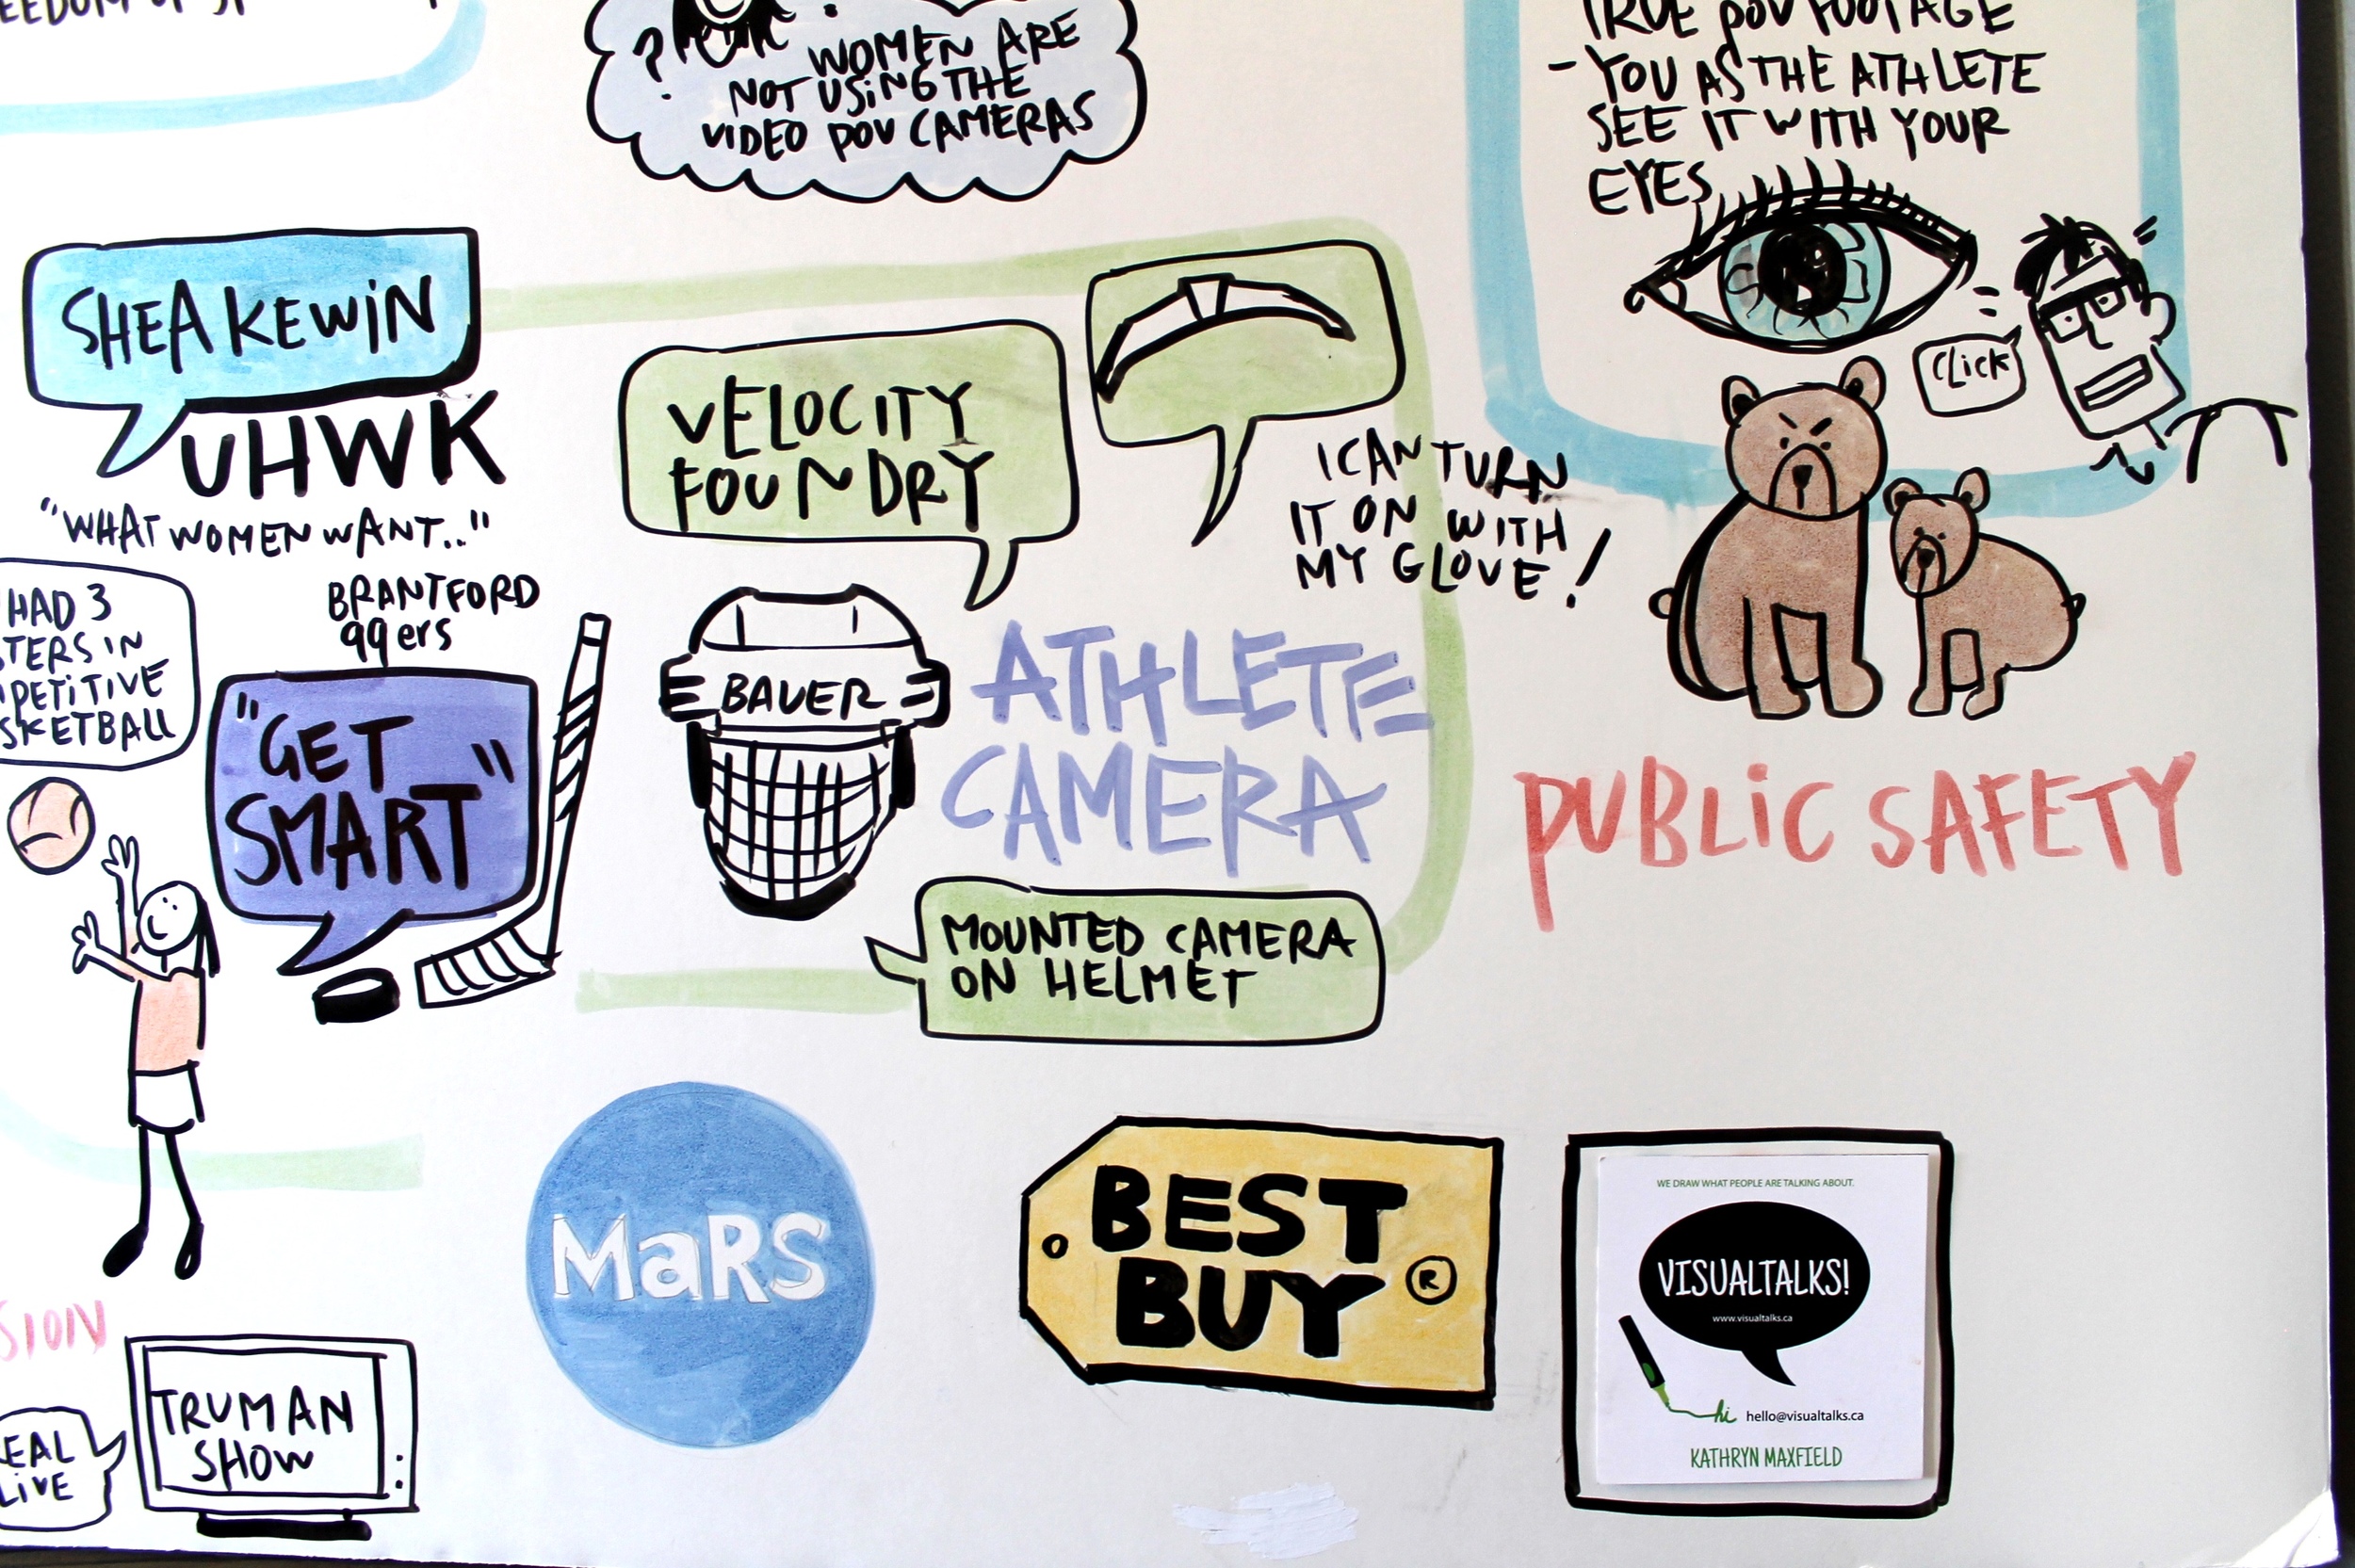 ? WOMEN ARE
NOT USING THE
VIDEO POV CAMERAS
TRUE POV FOOTAGE
- YOU AS THE ATHLETE
SEE IT WITH YOUR
EYES
CLICK
SHEA KEWIN
UHWK
"WHAT WOMEN WANT.."
HAD 3
IN
BRANTFORD
99ers
"GET
SMART"
VELOCITY
FOUNDRY
I CAN TURN
IT ON WITH
MY GLOVE!
BAUER
ATHLETE
CAMERA
MOUNTED CAMERA
ON HELMET
PUBLIC SAFETY
TRUMAN
SHOW
LIVE
MaRS
BEST
BUY ®
WE DRAW WHAT PEOPLE ARE TALKING ABOUT.
VISUALTALKS!
www.visualtalks.ca
hi hello@visualtalks.ca
KATHRYN MAXFIELD